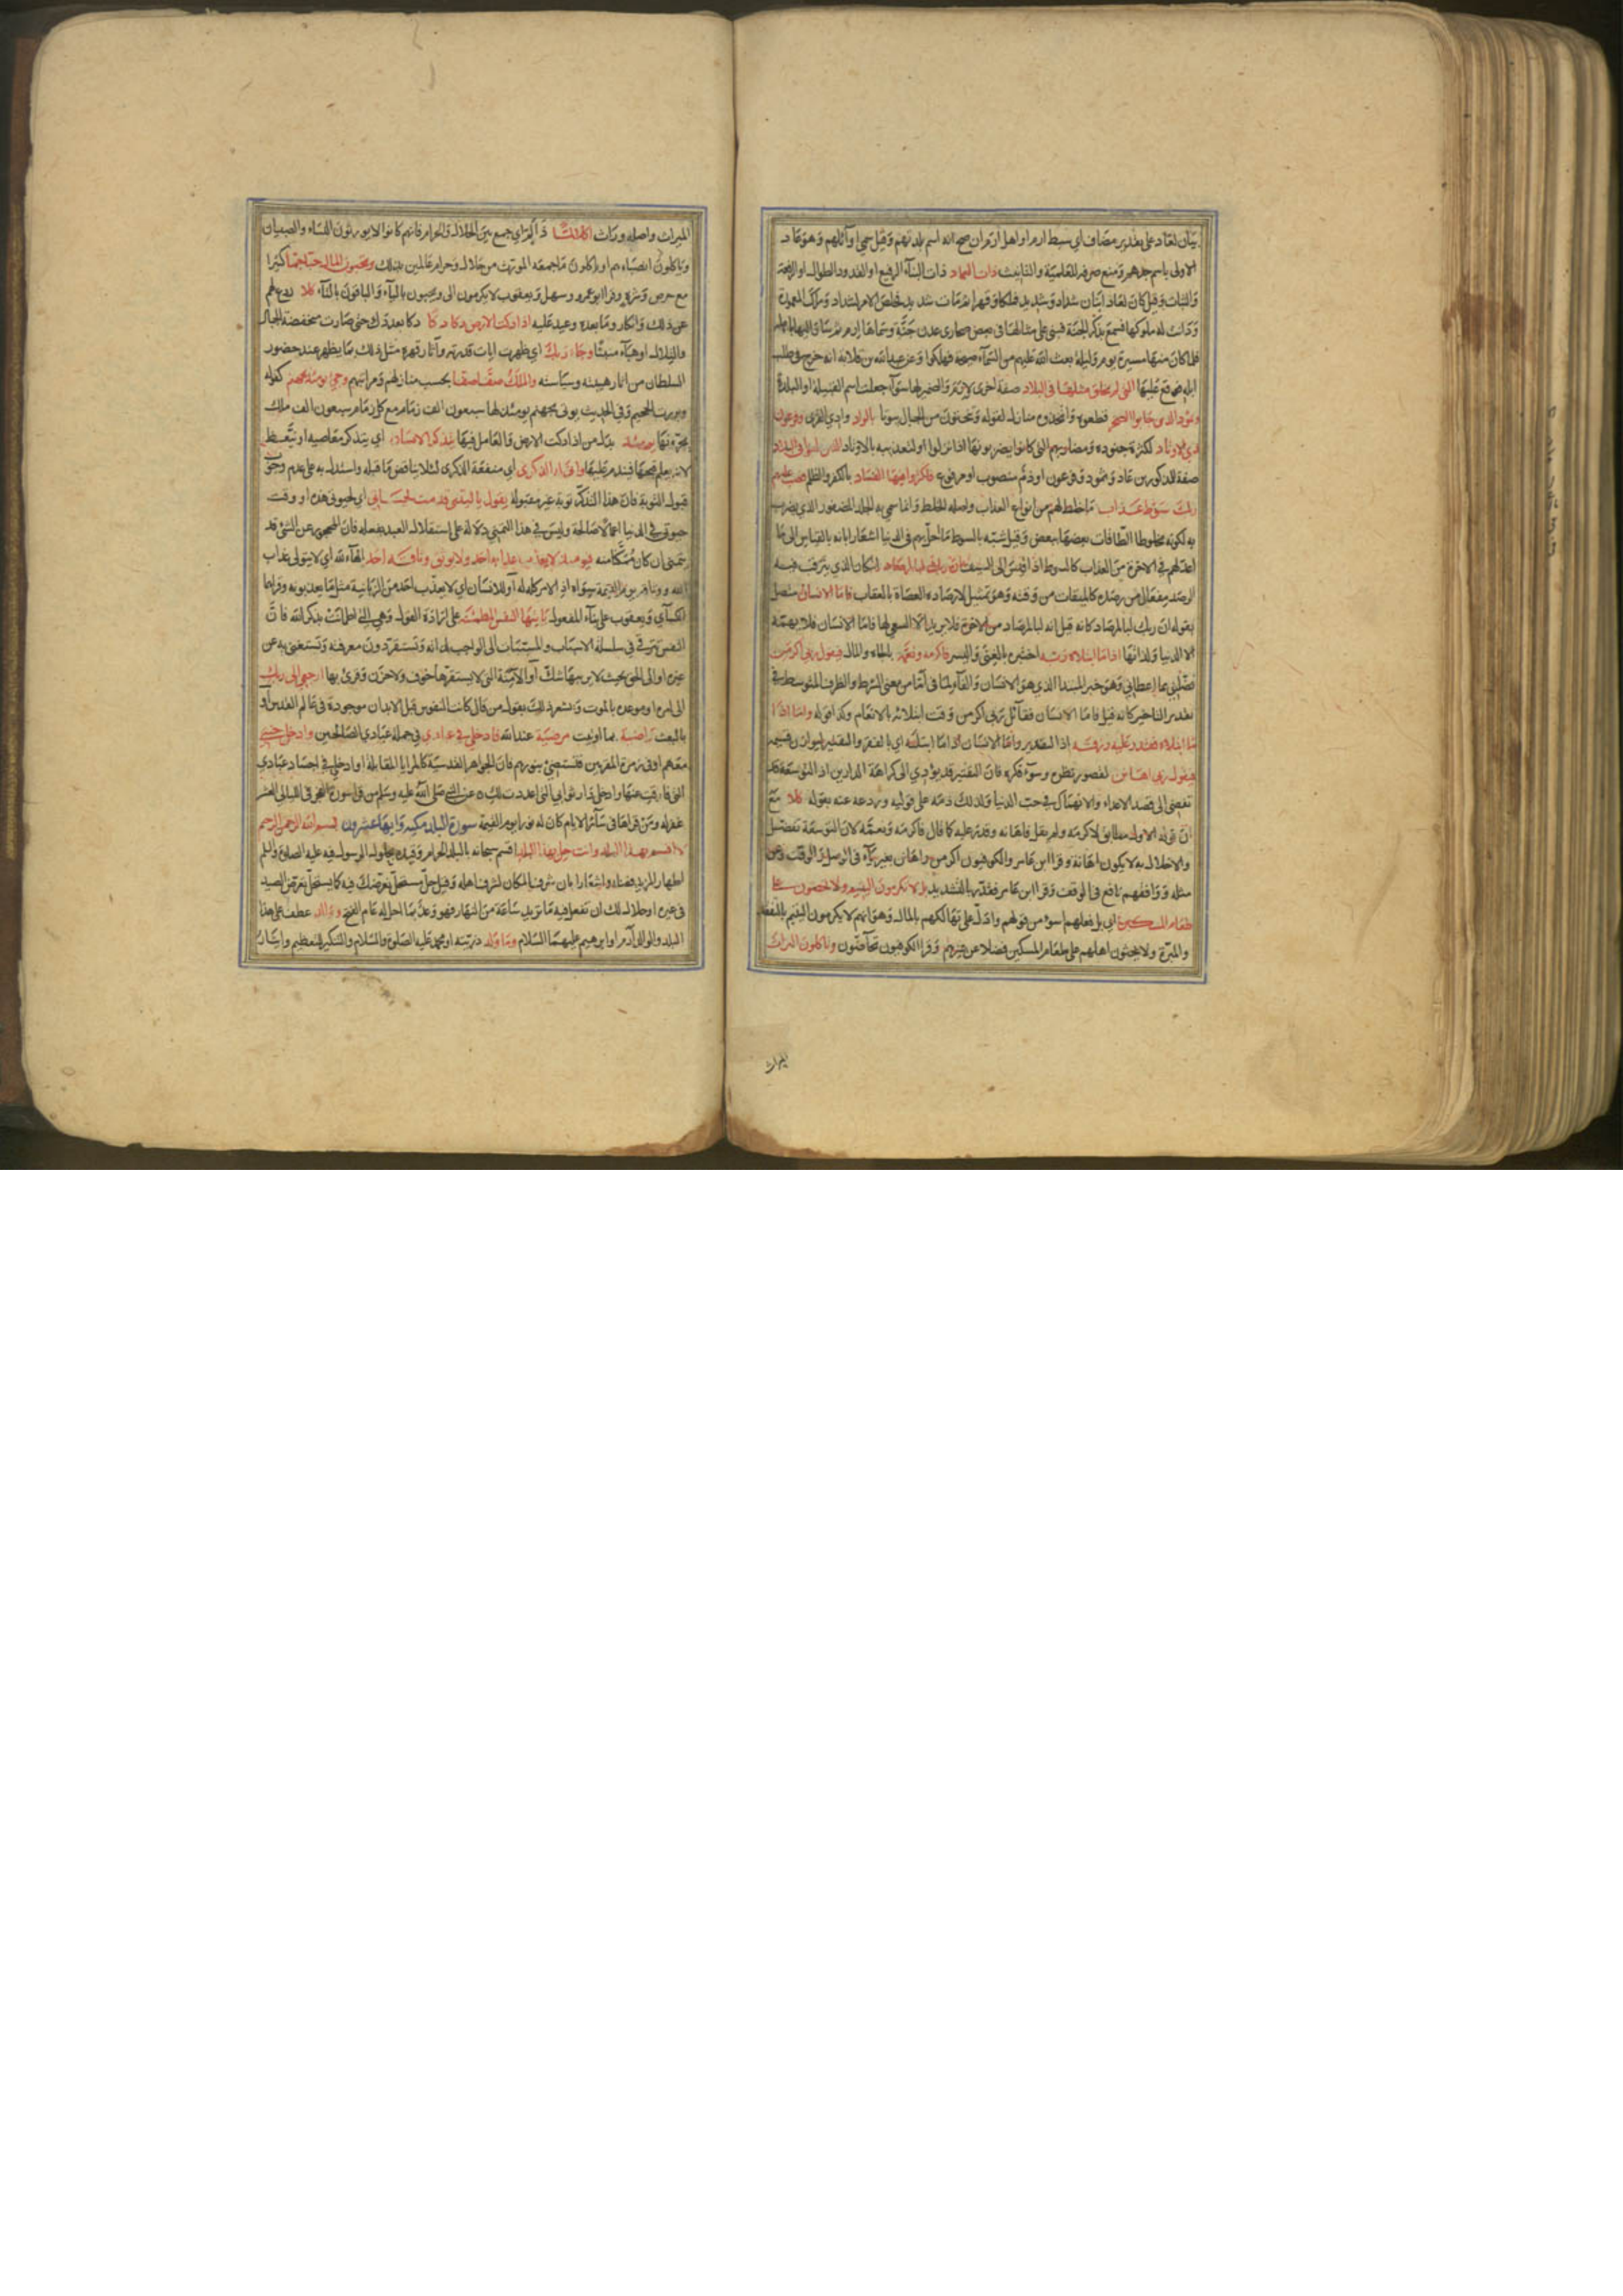 بيان لعاد على تقدير مضاف اي سبط ارم او اهل ارم ان صح انه اسم بلدتهم وقيل سمي اوائلهم وهو عاد
الاولى باسم جدهم ومنع صرفه للعلمية والتانيث ذات العماد ذات البناء الرفيع او القدود الطوال او الرفعة
والثبات وقيل كان لعاد ابنان شداد وشديد فملكا وقهرا ثم مات شديد فخلص الامر لشداد وملك المعمورة
ودانت له ملوكها فسمع بذكر الجنة فبنى على مثالها في بعض صحاري عدن جنة وسماها ارم ثم سار اليها باهله
فلما كان منها مسيرة يوم وليلة بعث الله عليهم من السماء صيحة فهلكوا وعن عبد الله بن قلابة انه خرج في طلب
ابله فوقع عليها التي لم يخلق مثلها في البلاد صفة اخرى لارم والضمير لها سواء جعلت اسم القبيلة او البلدة
وثمود الذين جابوا الصخر قطعوه واتخذوه منازل لقوله وتنحتون من الجبال بيوتا بالواد وادي القرى وفرعون
ذي الاوتاد لكثرة جنوده ومضاربهم التي كانوا يضربونها اذا نزلوا او لتعذيبه بالاوتاد الذين طغوا في البلاد
صفة للمذكورين عاد وثمود وفرعون او ذم منصوب او مرفوع فاكثروا فيها الفساد بالكفر والظلم فصب عليهم
ربك سوط عذاب ما خلط لهم من انواع العذاب واصله الخلط وانما سمي به الجلد المضفور الذي يضرب
به لكونه مخلوط الطاقات بعضها ببعض وقيل شبه بالسوط ما احل بهم في الدنيا اشعارا بانه بالقياس الى ما
اعد لهم في الاخرة من العذاب كالسوط اذا قيس الى السيف ان ربك لبالمرصاد المكان الذي يترقب فيه
الرصد مفعال من رصده كالميقات من وقته وهو تمثيل لارصاده العصاة بالعقاب فاما الانسان متصل
بقوله ان ربك لبالمرصاد كانه قيل انه لبالمرصاد من الاخرة فلا يريد الا السعي لها فاما الانسان فلا يهمه
الا الدنيا ولذاتها اذا ما ابتلاه ربه اختبره بالغنى واليسر فاكرمه ونعمه بالجاه والمال فيقول ربي اكرمن
فضلني بما اعطاني وهو خبر المبتدا الذي هو الانسان والفاء لما في اما من معنى الشرط والظرف المتوسط في
تقدير التاخير كانه قيل فاما الانسان فقائل ربي اكرمن وقت ابتلائه بالانعام وكذا قوله واما اذا
ما ابتلاه فقدر عليه رزقه اذ التقدير واما الانسان اذا ما ابتلاه اي بالفقر والتقتير ليوازن قسيمه
فيقول ربي اهانن لقصور نظره وسوء فكره فان التقتير قد يؤدي الى كرامة الدارين اذ التوسعة قد
تفضي الى قصد الاعداء والانهماك في حب الدنيا ولذلك ذمه على قوليه وردعه عنه بقوله كلا مع
ان قوله الاول مطابق لاكرمه ولم يقل فاهانه وقدر عليه كما قال فاكرمه ونعمه لان التوسعة تفضل
والاخلال به لا يكون اهانة وقرا ابن عامر والكوفيون اكرمن واهانن بغير ياء في الوصل والوقف وعن
مثله ووافقهم نافع في الوقف وقرا ابن عامر فقدر بالتشديد بل لا تكرمون اليتيم ولا تحضون على
طعام المسكين اي بل فعلهم اسوء من قولهم وادل على تهالكهم بالمال وهو انهم لا يكرمون اليتيم بالنفقة
والمبرة ولا يحثون اهلهم على طعام المسكين فضلا عن غيرهم وقرا الكوفيون تحاضون وتاكلون التراث
الميراث
الميراث واصله وراث اكلا لما ذا لم اي جمع بين الحلال والحرام فانهم كانوا لا يورثون النساء والصبيان
وياكلون انصباءهم او ياكلون ما جمعه المورث من حلال وحرام عالمين بذلك ويحبون المال حبا جما كثيرا
مع حرص وشره وقرا ابو عمرو وسهل ويعقوب لا يكرمون الى ويحبون بالياء والباقون بالتاء كلا ردع لهم
عن ذلك وانكار وما بعده وعيد عليه اذا دكت الارض دكا دكا دكا بعد دك حتى صارت منخفضة الجبال
والتلال او هباء منبثا وجاء ربك اي ظهرت ايات قدرته واثار قهره مثل ذلك بما يظهر عند حضور
السلطان من اثار هيبته وسياسته والملك صفا صفا بحسب منازلهم ومراتبهم وجيء يومئذ بجهنم كقوله
وبرزت الجحيم وفي الحديث يوتى بجهنم يومئذ لها سبعون الف زمام مع كل زمام سبعون الف ملك
يجرونها يومئذ بدل من اذا دكت الارض والعامل فيها يتذكر الانسان اي يتذكر معاصيه او يتعظ
لانه يعلم قبحها فيندم عليها وانى له الذكرى اي منفعة الذكرى لئلا يناقض ما قبله واستدل به على عدم وجوب
قبول التوبة فان هذا التذكر توبة غير مقبولة يقول يا ليتني قدمت لحياتي اي لحيوتي هذه او وقت
حيوتي في الدنيا اعمالا صالحة وليس في هذا التمني دلالة على استقلال العبد بفعله فان المحجور عن الشيء قد
يتمنى ان كان ممكنا منه فيومئذ لا يعذب عذابه احد ولا يوثق وثاقه احد الهاء لله اي لا يتولى عذاب
الله ووثاقه يوم القيمة سواه اذ الامر كله له او للانسان اي لا يعذب احد من الزبانية مثل ما يعذبونه وقراهما
الكسائي ويعقوب على بناء المفعول يا ايتها النفس المطمئنة على ارادة القول وهي التي اطمانت بذكر الله فان
النفس تترقى في سلسلة الاسباب والمسببات الى الواجب لذاته فتستقر دون معرفته وتستغني به عن
غيره او الى الحق بحيث لا يريبها شك او الآمنة التي لا يستفزها خوف ولا حزن وقرئ بها ارجعي الى ربك
الى امره او موعده بالموت ويشعر ذلك بقول من قال كانت النفوس قبل الابدان موجودة في عالم القدس او
بالبعث راضية بما اوتيت مرضية عند الله فادخلي في عبادي في جملة عبادي الصالحين وادخلي جنتي
معهم او في زمرة المقربين فتستضيء بنورهم فان الجواهر القدسية كالمرايا المتقابلة او ادخلي في اجساد عبادي
التي فارقت عنها وادخلي دار ثوابي التي اعددت لك عن النبي صلى الله عليه وسلم من قرا سورة الفجر في الليالي العشر
غفر له ومن قراها في سائر الايام كان له نورا يوم القيمة سورة البلد مكية وايها عشرون بسم الله الرحمن الرحيم
لا اقسم بهذا البلد وانت حل بهذا البلد اقسم سبحانه بالبلد الحرام وقيده بحلول الرسول فيه عليه الصلوة والسلم
اظهارا لمزيد فضله واشعارا بان شرف المكان لشرف اهله وقيل حل مستحل تعرضك فيه كما يستحل تعرض الصيد
في غيره او حلال لك ان تفعل فيه ما تريد ساعة من النهار فهو وعد بما احل له عام الفتح ووالد عطف على هذا
البلد والوالد آدم او ابرهيم عليهما السلام وما ولد ذريته او محمد عليه الصلوة والسلام والتنكير للتعظيم وايثار